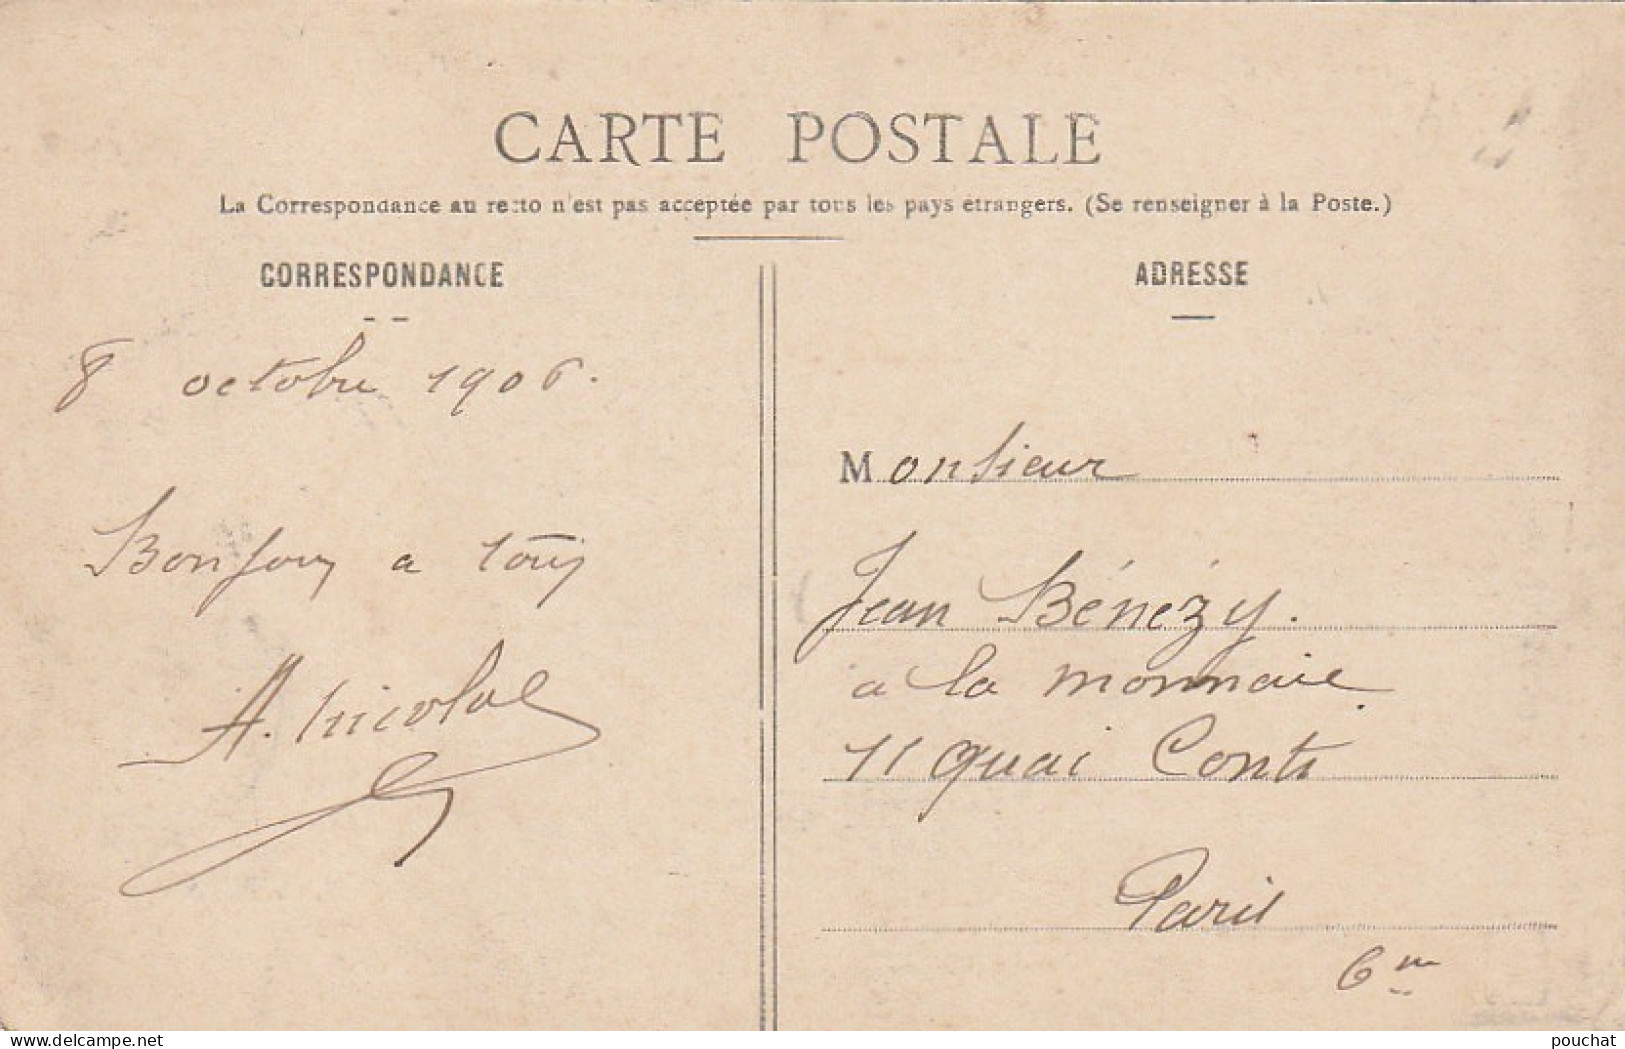 CARTE POSTALE
La Correspondance au recto n'est pas acceptée par tous les pays étrangers. (Se renseigner à la Poste.)
CORRESPONDANCE
8 octobre 1906.
Bonjour a tous
A. Nicolas
ADRESSE
Monsieur
Jean Bénézy.
a la monnaie
11 quai Conti
Paris
6me
delcampe.net
pouchat